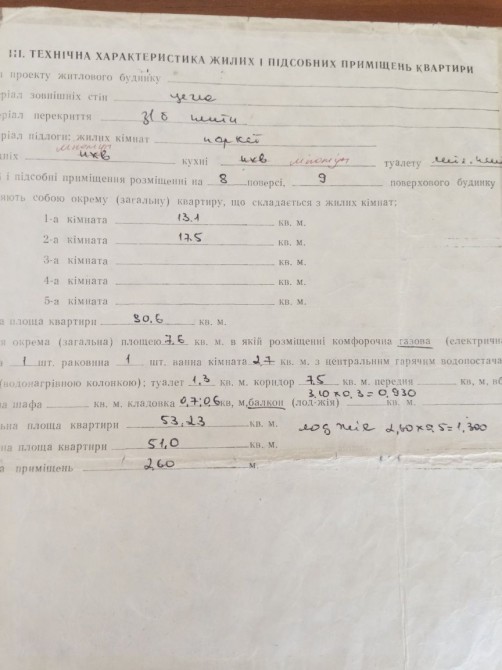 III. ТЕХНІЧНА ХАРАКТЕРИСТИКА ЖИЛИХ І ПІДСОБНИХ ПРИМІЩЕНЬ КВАРТИРИ
проекту житлового будинку
ріал зовнішніх стін цегла
еріал перекриття з/б плити
ріал підлоги: жилих кімнат паркет
лінолеум лінолеум
дніх пхв кухні пхв туалету
і підсобні приміщення розміщенні на 8 поверсі, 9 поверхового будинку
яють собою окрему (загальну) квартиру, що складається з жилих кімнат:
1-а кімната 13.1 кв. м.
2-а кімната 17.5 кв. м.
3-а кімната кв. м.
4-а кімната кв. м.
5-а кімната кв. м.
а площа квартири 30,6 кв. м.
я окрема (загальна) площею 7,6 кв. м. в якій розміщенні комфорочна газова (електрична
а 1 шт. раковина 1 шт. ванна кімната 2,7 кв. м. з центральним гарячим водопоста
(водонагрівною колонкою); туалет 1,3 кв. м. коридор 7,5 кв. м. передня кв. м, вб
3,10 х 0,3 = 0,930
а шафа кв. м. кладовка 0,7; 0,6 кв, м, балкон (лод-жія) кв. м.
льна площа квартири 53,23 кв. м. лоджія 2,60 х 0,5 = 1,300
на площа квартири 51,0 кв. м.
а приміщень 2,60 м.